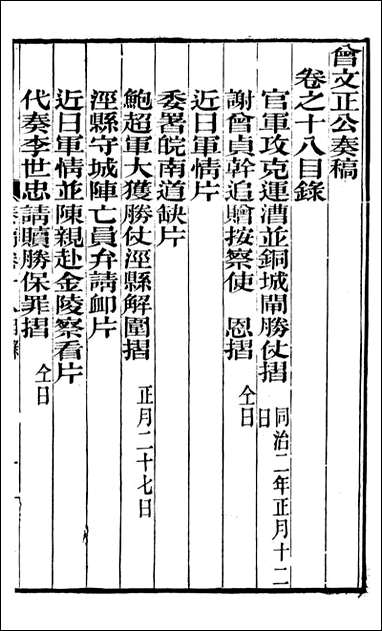 曾文正公奏稿
卷之十八目錄
官軍攻克運漕並銅城閘勝仗摺 同治二年正月十二日
謝曾貞幹追贈按察使 恩摺 仝日
近日軍情片
委署皖南道缺片
鮑超軍大獲勝仗涇縣解圍摺 正月二十七日
涇縣守城陣亡員弁請卹片
近日軍情並陳親赴金陵察看片
代奏李世忠請贖勝保罪摺 仝日